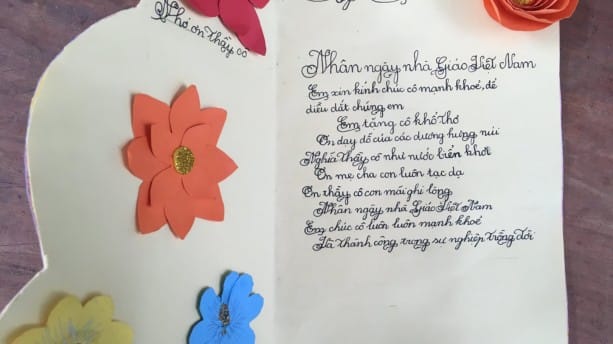 Nhớ ơn thầy cô
Nhân ngày nhà Giáo Việt Nam
Em xin kính chúc cô mạnh khoẻ, để
dìu dắt chúng em
Em tặng cô khổ thơ
Ơn dạy dỗ của các dương hưng núi
Nghĩa thầy cô như nước biển khơi
Ơn mẹ cha con luôn tạc dạ
Ơn thầy cô con mãi ghi lòng
Nhân ngày nhà Giáo Việt Nam
Em chúc cô luôn luôn mạnh khoẻ
Là thành công trong sự nghiệp trồng đời